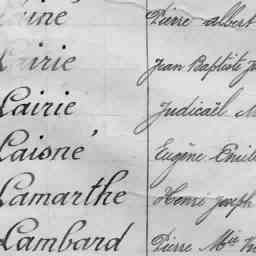 Pierre albert
Lairie Jean Baptiste
Lairie Judicaël
Laisné Eugène Emile
Lamarthe Henri joseph
Lambard Pierre Mie